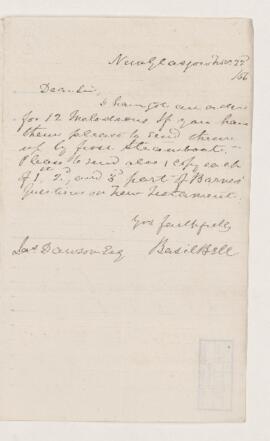 New Glasgow Nov 22d
/56
Dear Sir,
I have got an order
for 12 Melodeons If you have
them please to send them
up by first Steamboat.
Please to send also 1 Copy each
of 1st 2d, and 3d part of Barnes'
Questions on New Testament.
Yours faithfully
Jas Dawson Esq Basil Bell